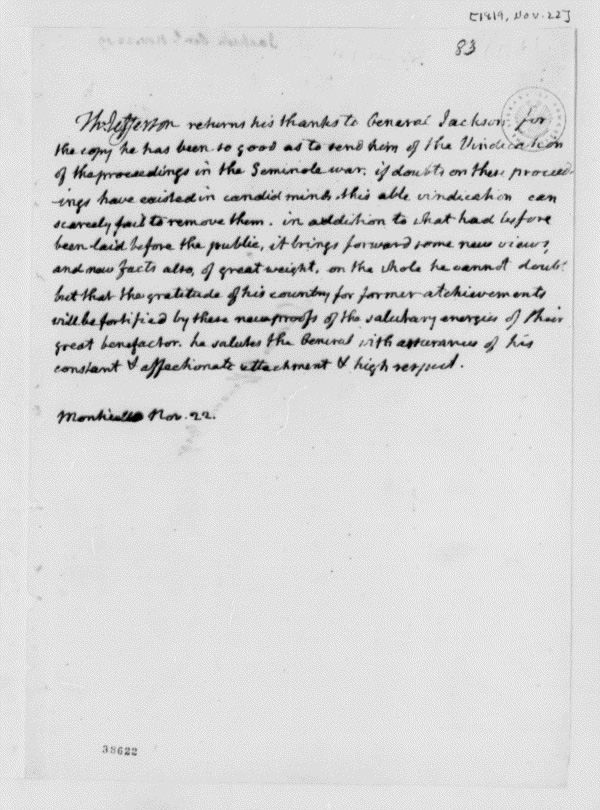 [1819, Nov. 22]
83
Th: Jefferson returns his thanks to General Jackson for
the copy he has been so good as to send him of the Vindication
of the proceedings in the Seminole war. if doubts on these proceed-
-ings have existed in candid minds this able vindication can
scarcely fail to remove them. in addition to what had before
been laid before the public, it brings forward some new views,
and new facts also, of great weight. on the whole he cannot doubt
but that the gratitude of his country for former atchievements
will be fortified by these new proofs of the salutary energies of their
great benefactor. he salutes the General with assurances of his
constant & affectionate attachment & high respect.
Monticello Nov. 22.
38622